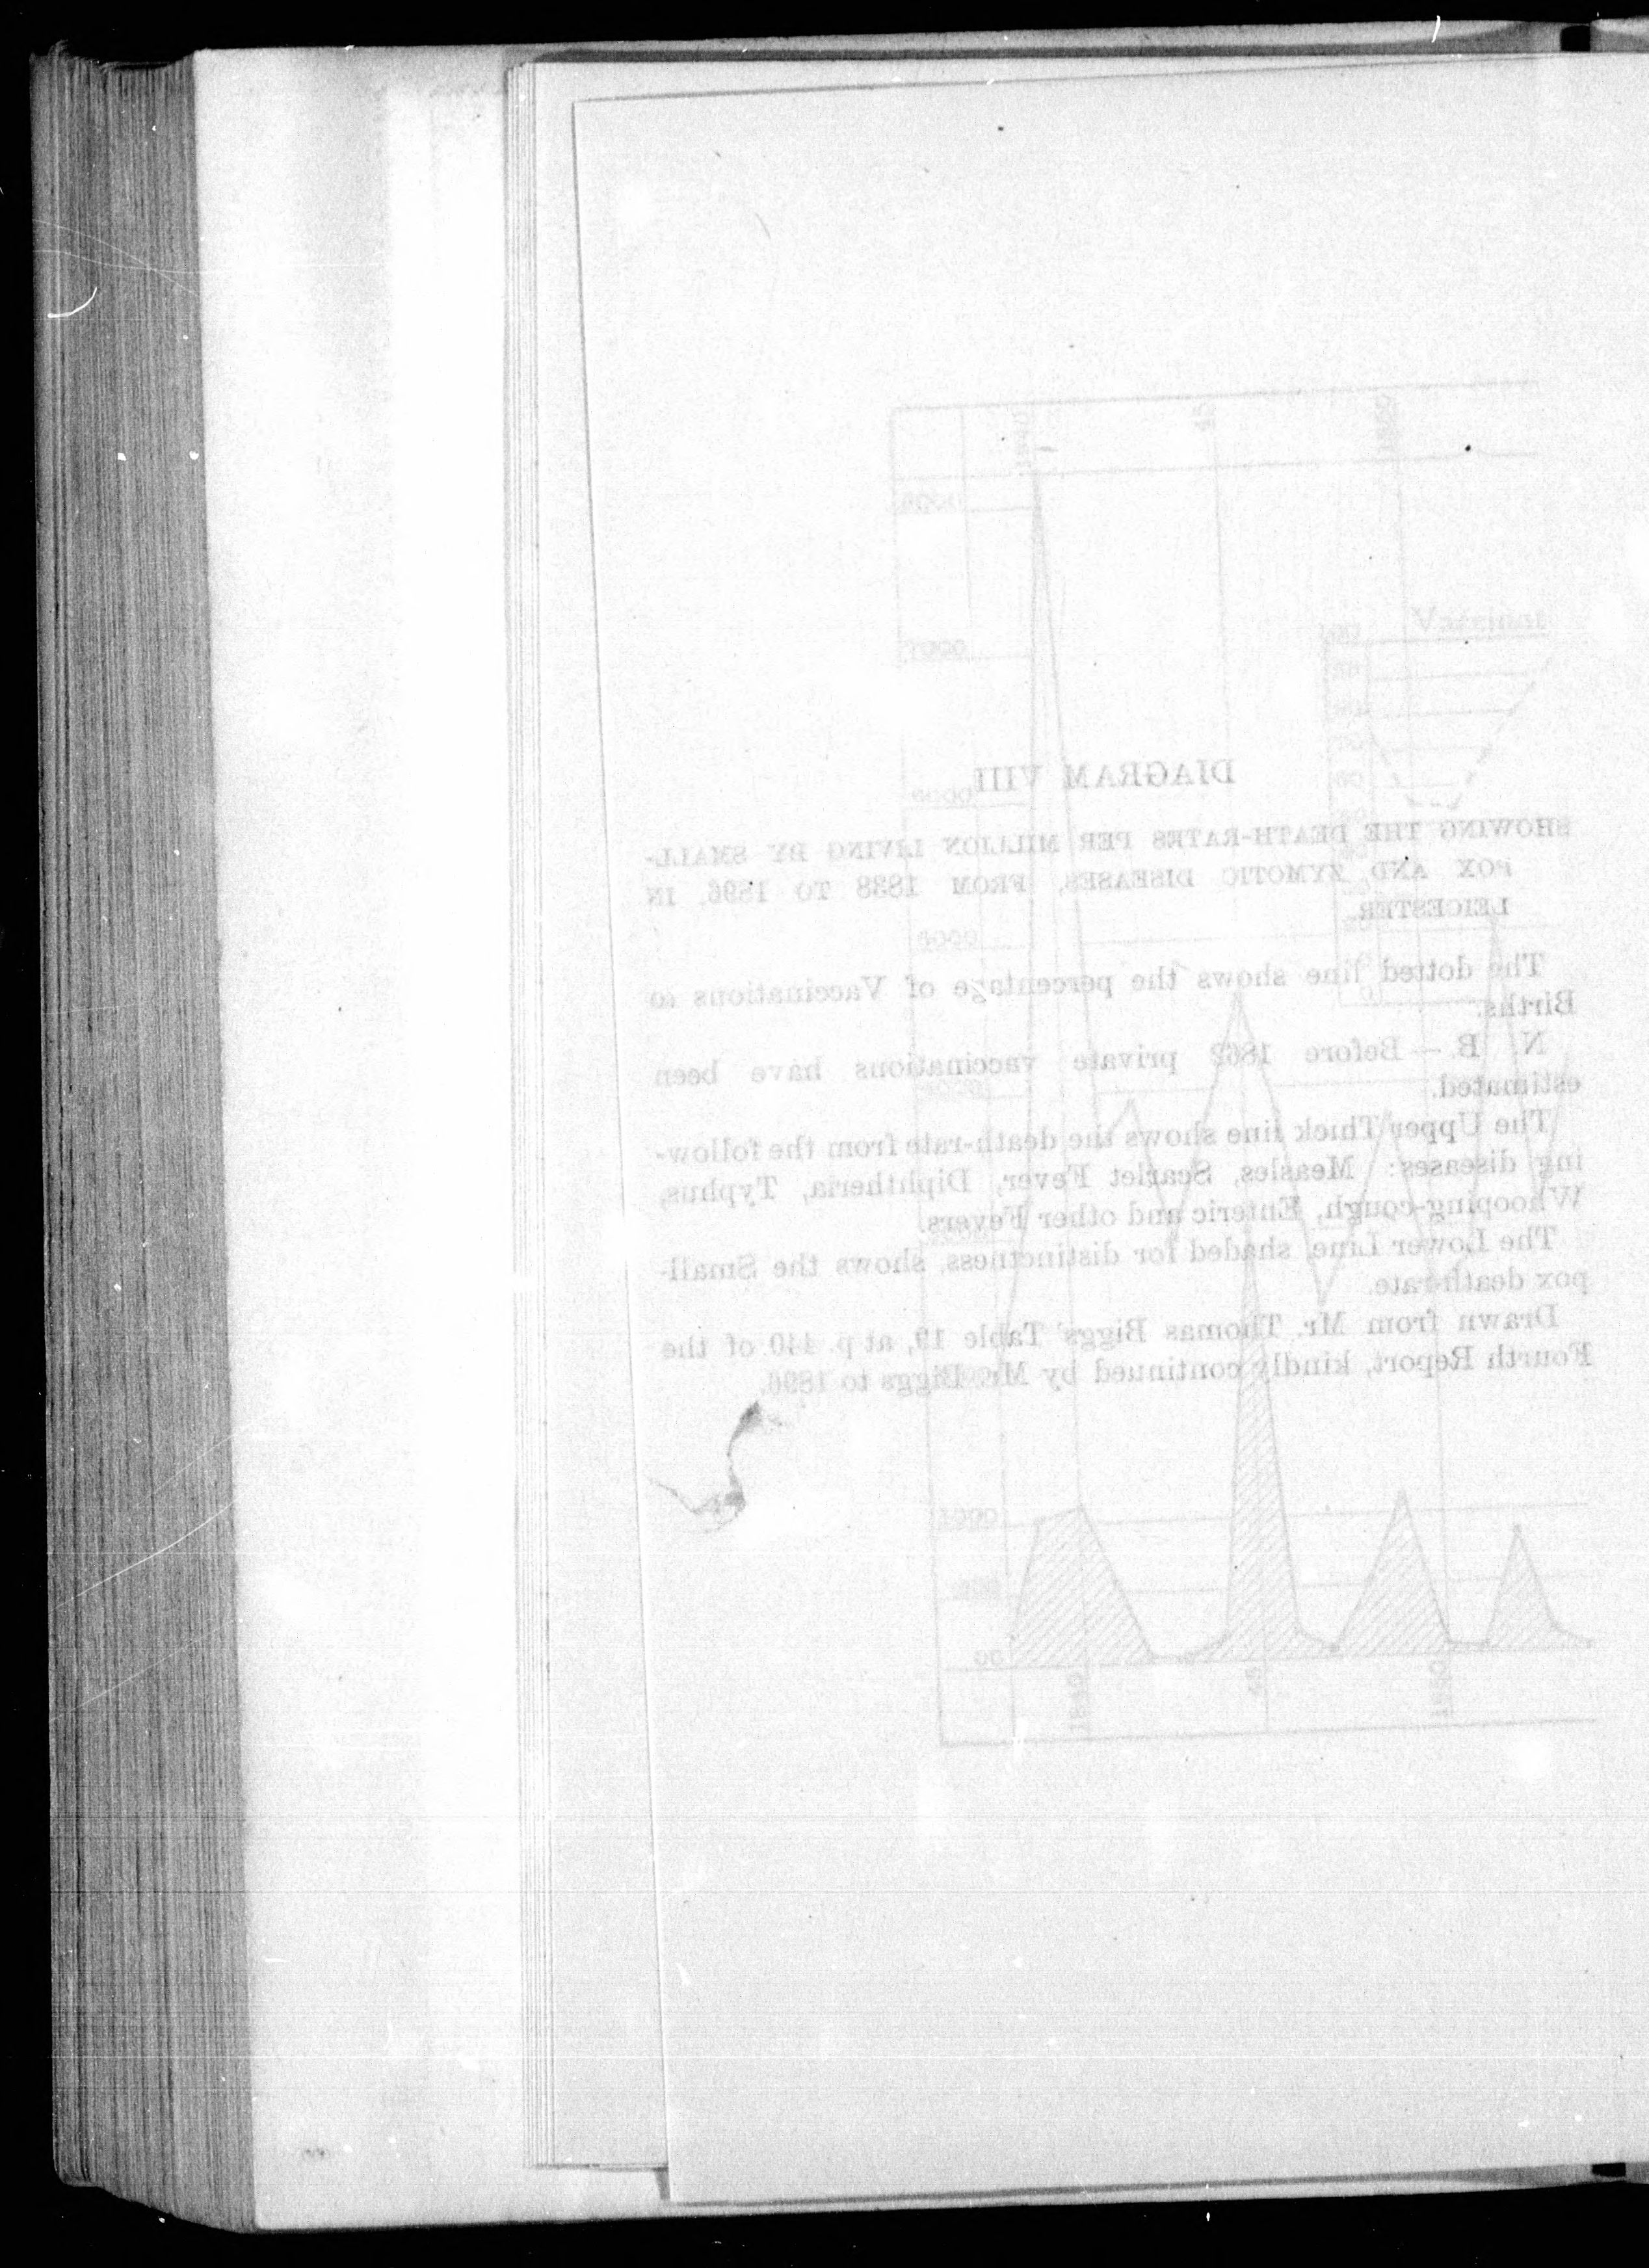 DIAGRAM VIII
SHOWING THE DEATH-RATES PER MILLION LIVING BY SMALL-
POX AND ZYMOTIC DISEASES, FROM 1838 TO 1896, IN
LEICESTER.
The dotted line shows the percentage of Vaccinations to
Births.
N. B.—Before 1862 private vaccinations have been
estimated.
The Upper Thick line shows the death-rate from the follow-
ing diseases: Measles, Scarlet Fever, Diphtheria, Typhus,
Whooping-cough, Enteric and other Fevers.
The Lower Line, shaded for distinctness, shows the Small-
pox death-rate.
Drawn from Mr. Thomas Biggs' Table 19, at p. 440 of the
Fourth Report, kindly continued by Mr. Biggs to 1896.
45
1850
Vaccinat
7000
1000
00
1840
45
1850